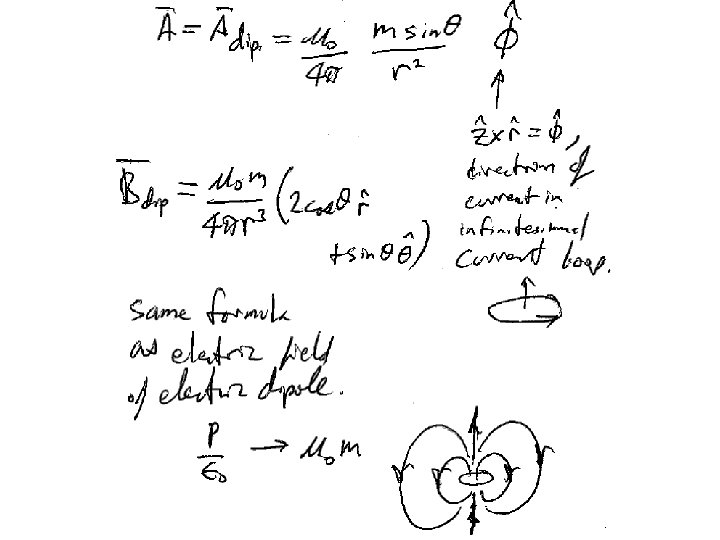 A̅ = A̅dip. = μ₀/4π m sinθ/r² φ̂
ẑ×r̂ = φ̂,
direction of
current in
infinitesimal
current loop.
B̅dip = μ₀m/4πr³ (2cosθ r̂
+ sinθ θ̂)
same formula
as electric field
of electric dipole.
P/ε₀ → μ₀m